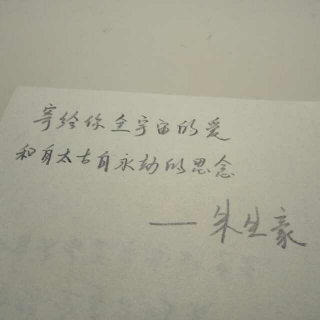 寄给你全宇宙的爱
和自太古自永劫的思念
——朱生豪